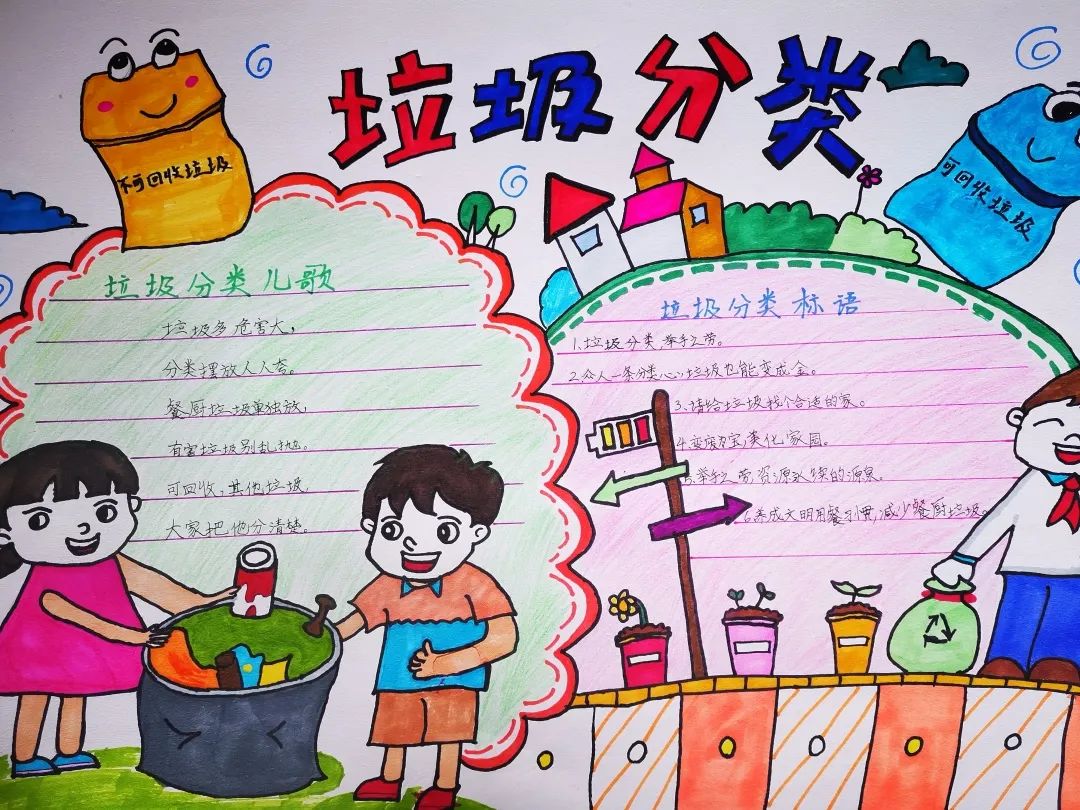 垃圾分类
不可回收垃圾
可回收垃圾
垃圾分类儿歌
垃圾多危害大,
分类摆放人人夸。
餐厨垃圾单独放,
有害垃圾别乱抛。
可回收,其他垃圾,
大家把他分清楚。
垃圾分类标语
1.垃圾分类举手之劳。
2.众人一条分类心,垃圾也能变成金。
3.请给垃圾找个合适的家。
4.变废为宝,美化家园。
5.举手之劳,资源永续的源泉。
6.养成文明用餐习惯,减少餐厨垃圾。